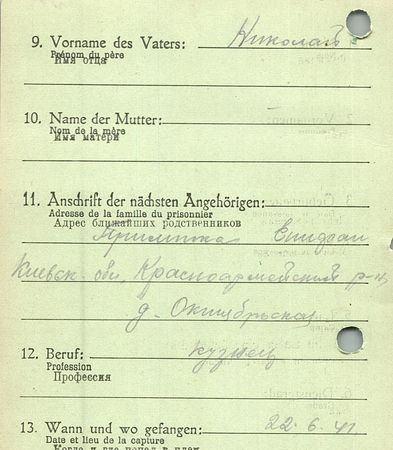 9. Vorname des Vaters: Николай
Prénom du père
Имя отца
10. Name der Mutter:
Nom de la mère
Имя матери
11. Anschrift der nächsten Angehörigen:
Adresse de la famille du prisonnier
Адрес ближайших родственников
Киевск. обл, Красноармейский р-н
д. Октябрьская
12. Beruf: кузнец
Profession
Профессия
13. Wann und wo gefangen: 22. 6. 41
Date et lieu de la capture
Когда и где попал в плен